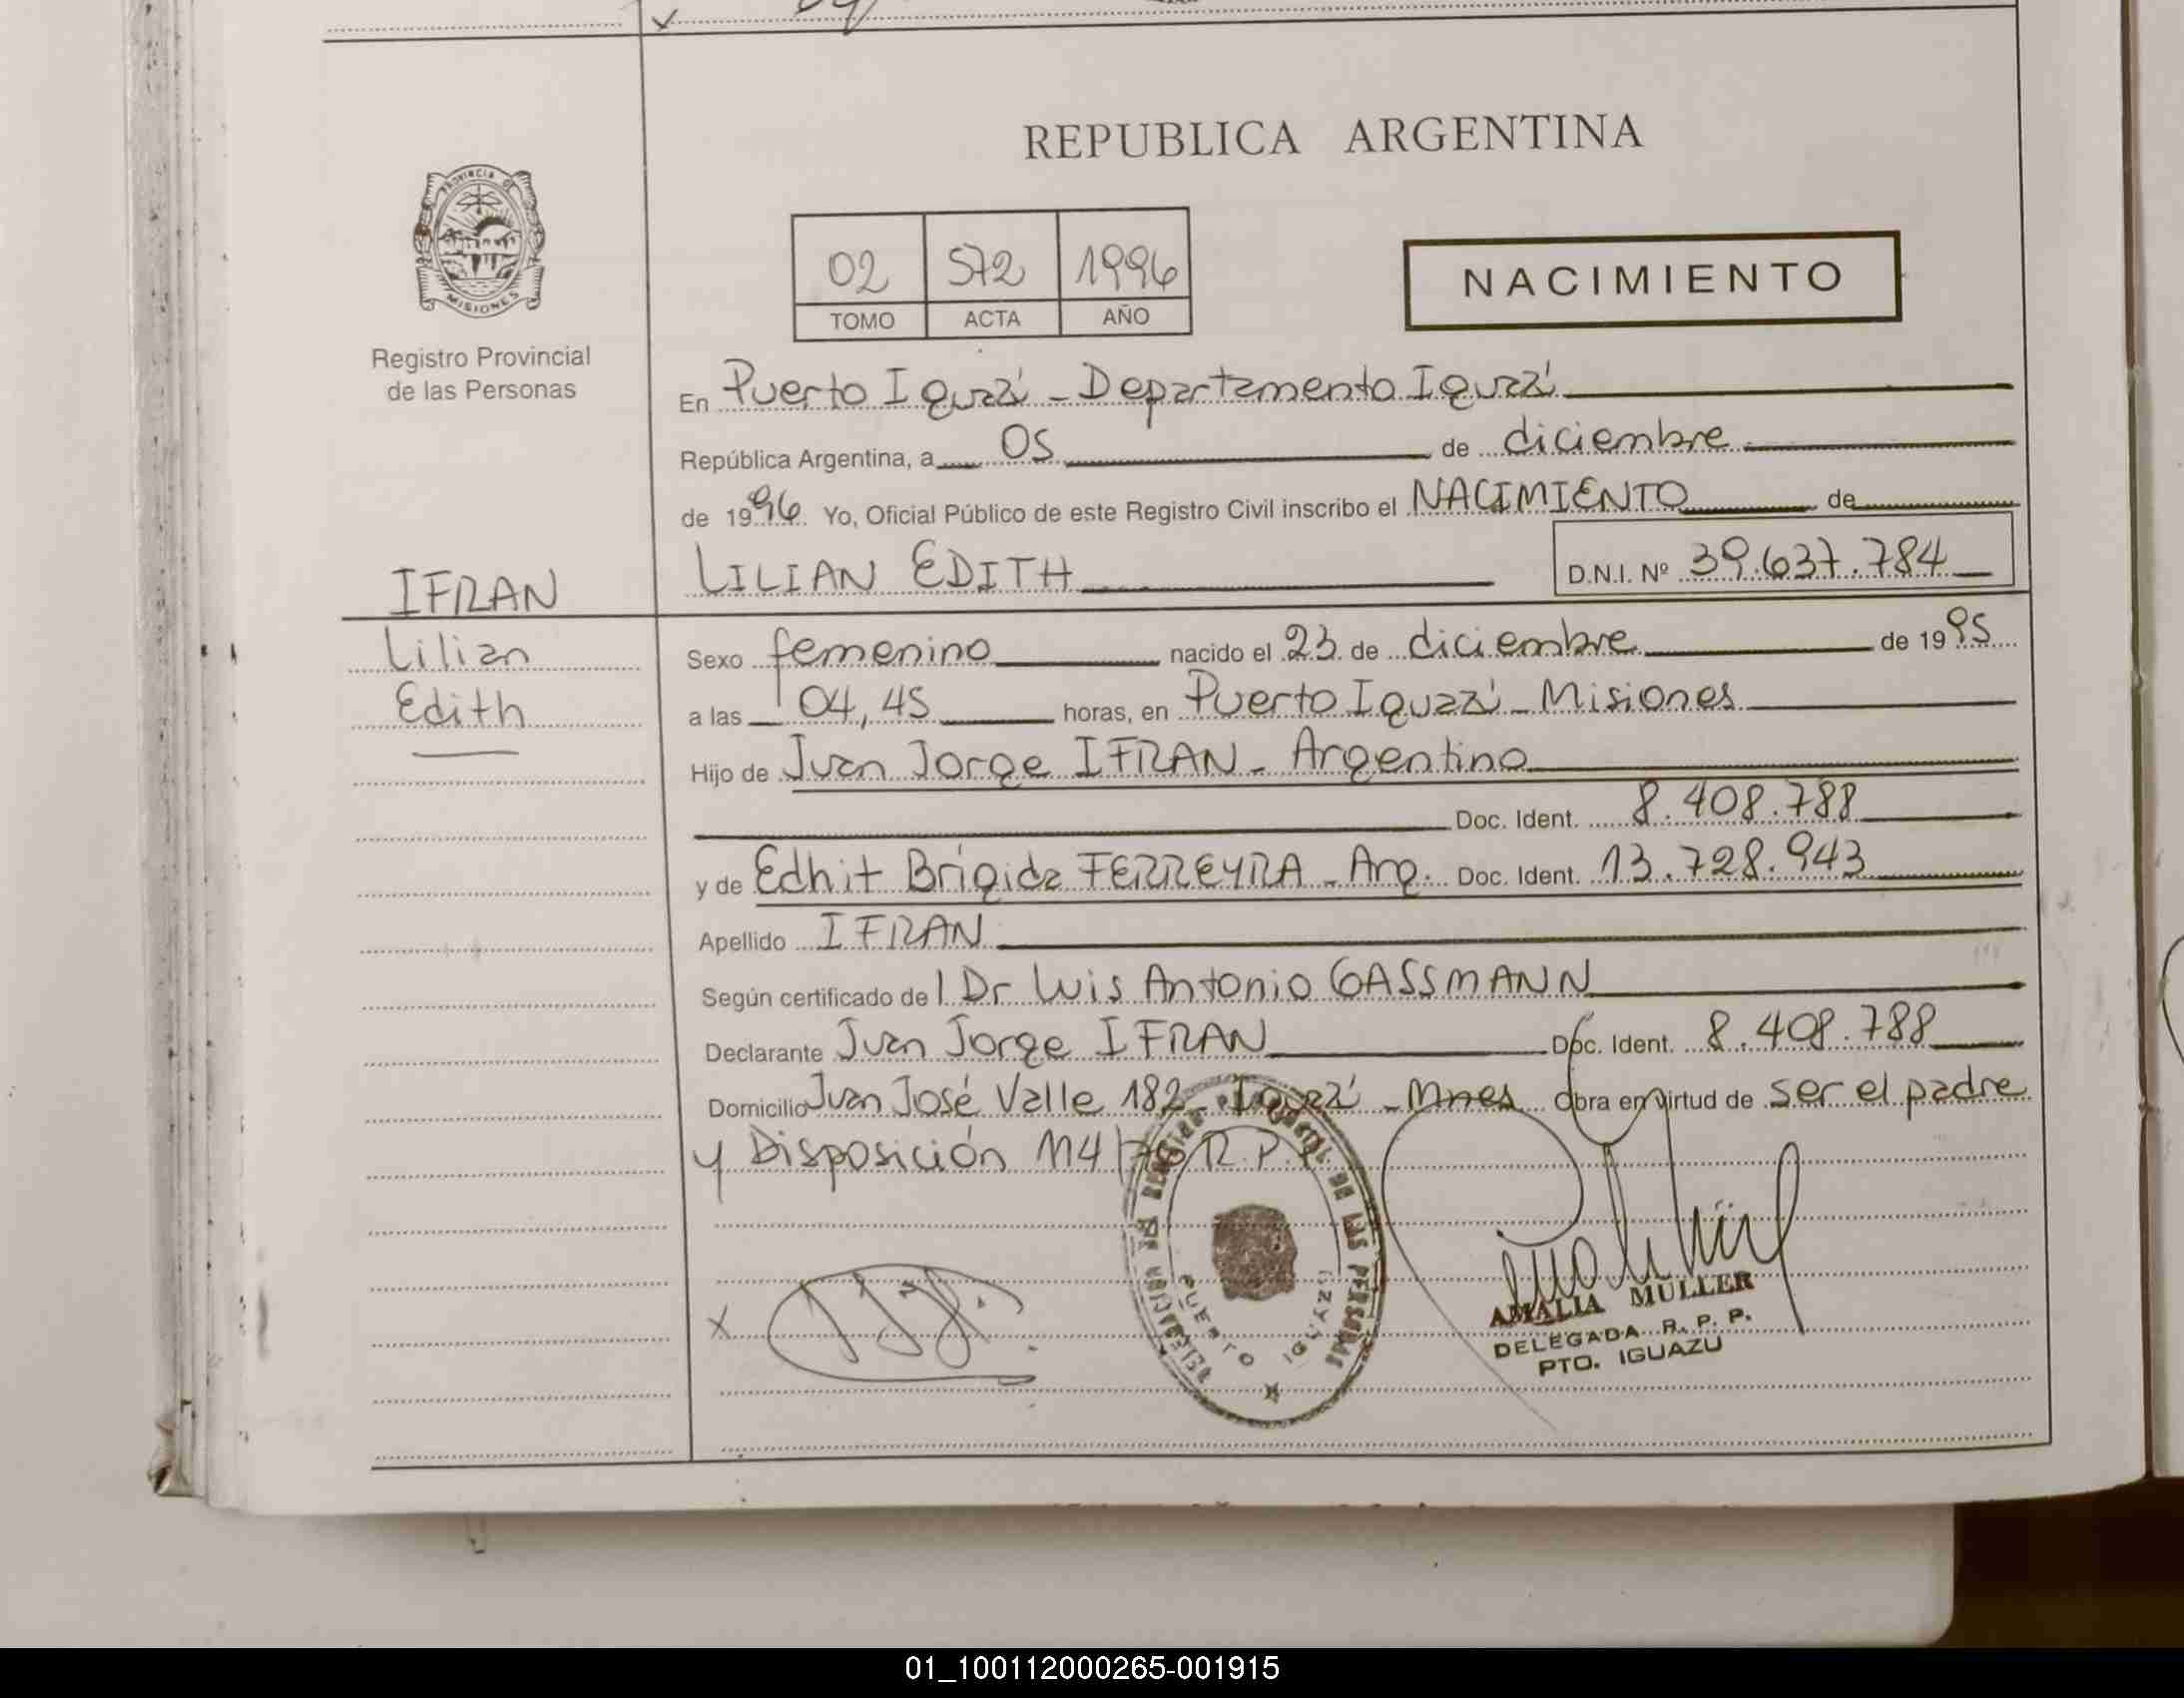 REPUBLICA ARGENTINA
PROVINCIA DE
MISIONES
Registro Provincial
de las Personas
02 572 1996
TOMO ACTA AÑO
NACIMIENTO
En Puerto Iguazú - Departamento Iguazú
República Argentina, a 05 de diciembre
de 1996 Yo, Oficial Público de este Registro Civil inscribo el NACIMIENTO de
IFRAN LILIAN EDITH D.N.I. Nº 39.637.784
Lilian Sexo femenino nacido el 23 de diciembre de 1995
Edith a las 04,45 horas, en Puerto Iguazú - Misiones
Hijo de Juan Jorge IFRAN - Argentino
Doc. Ident. 8.408.788
y de Edhit Brígida FERREYRA - Arg. Doc. Ident. 13.728.943
Apellido IFRAN
Según certificado del Dr Luis Antonio GASSMANN
Declarante Juan Jorge IFRAN Doc. Ident. 8.408.788
Domicilio Juan José Valle 182 - Iguazú - Mnes obra en virtud de ser el padre
y Disposición 114/76 R.P.P.
DELEGACION DEL REGISTRO PROVINCIAL DE LAS PERSONAS
PUERTO IGUAZU
x
AMALIA MULLER
DELEGADA R. P. P.
PTO. IGUAZU
01_100112000265-001915